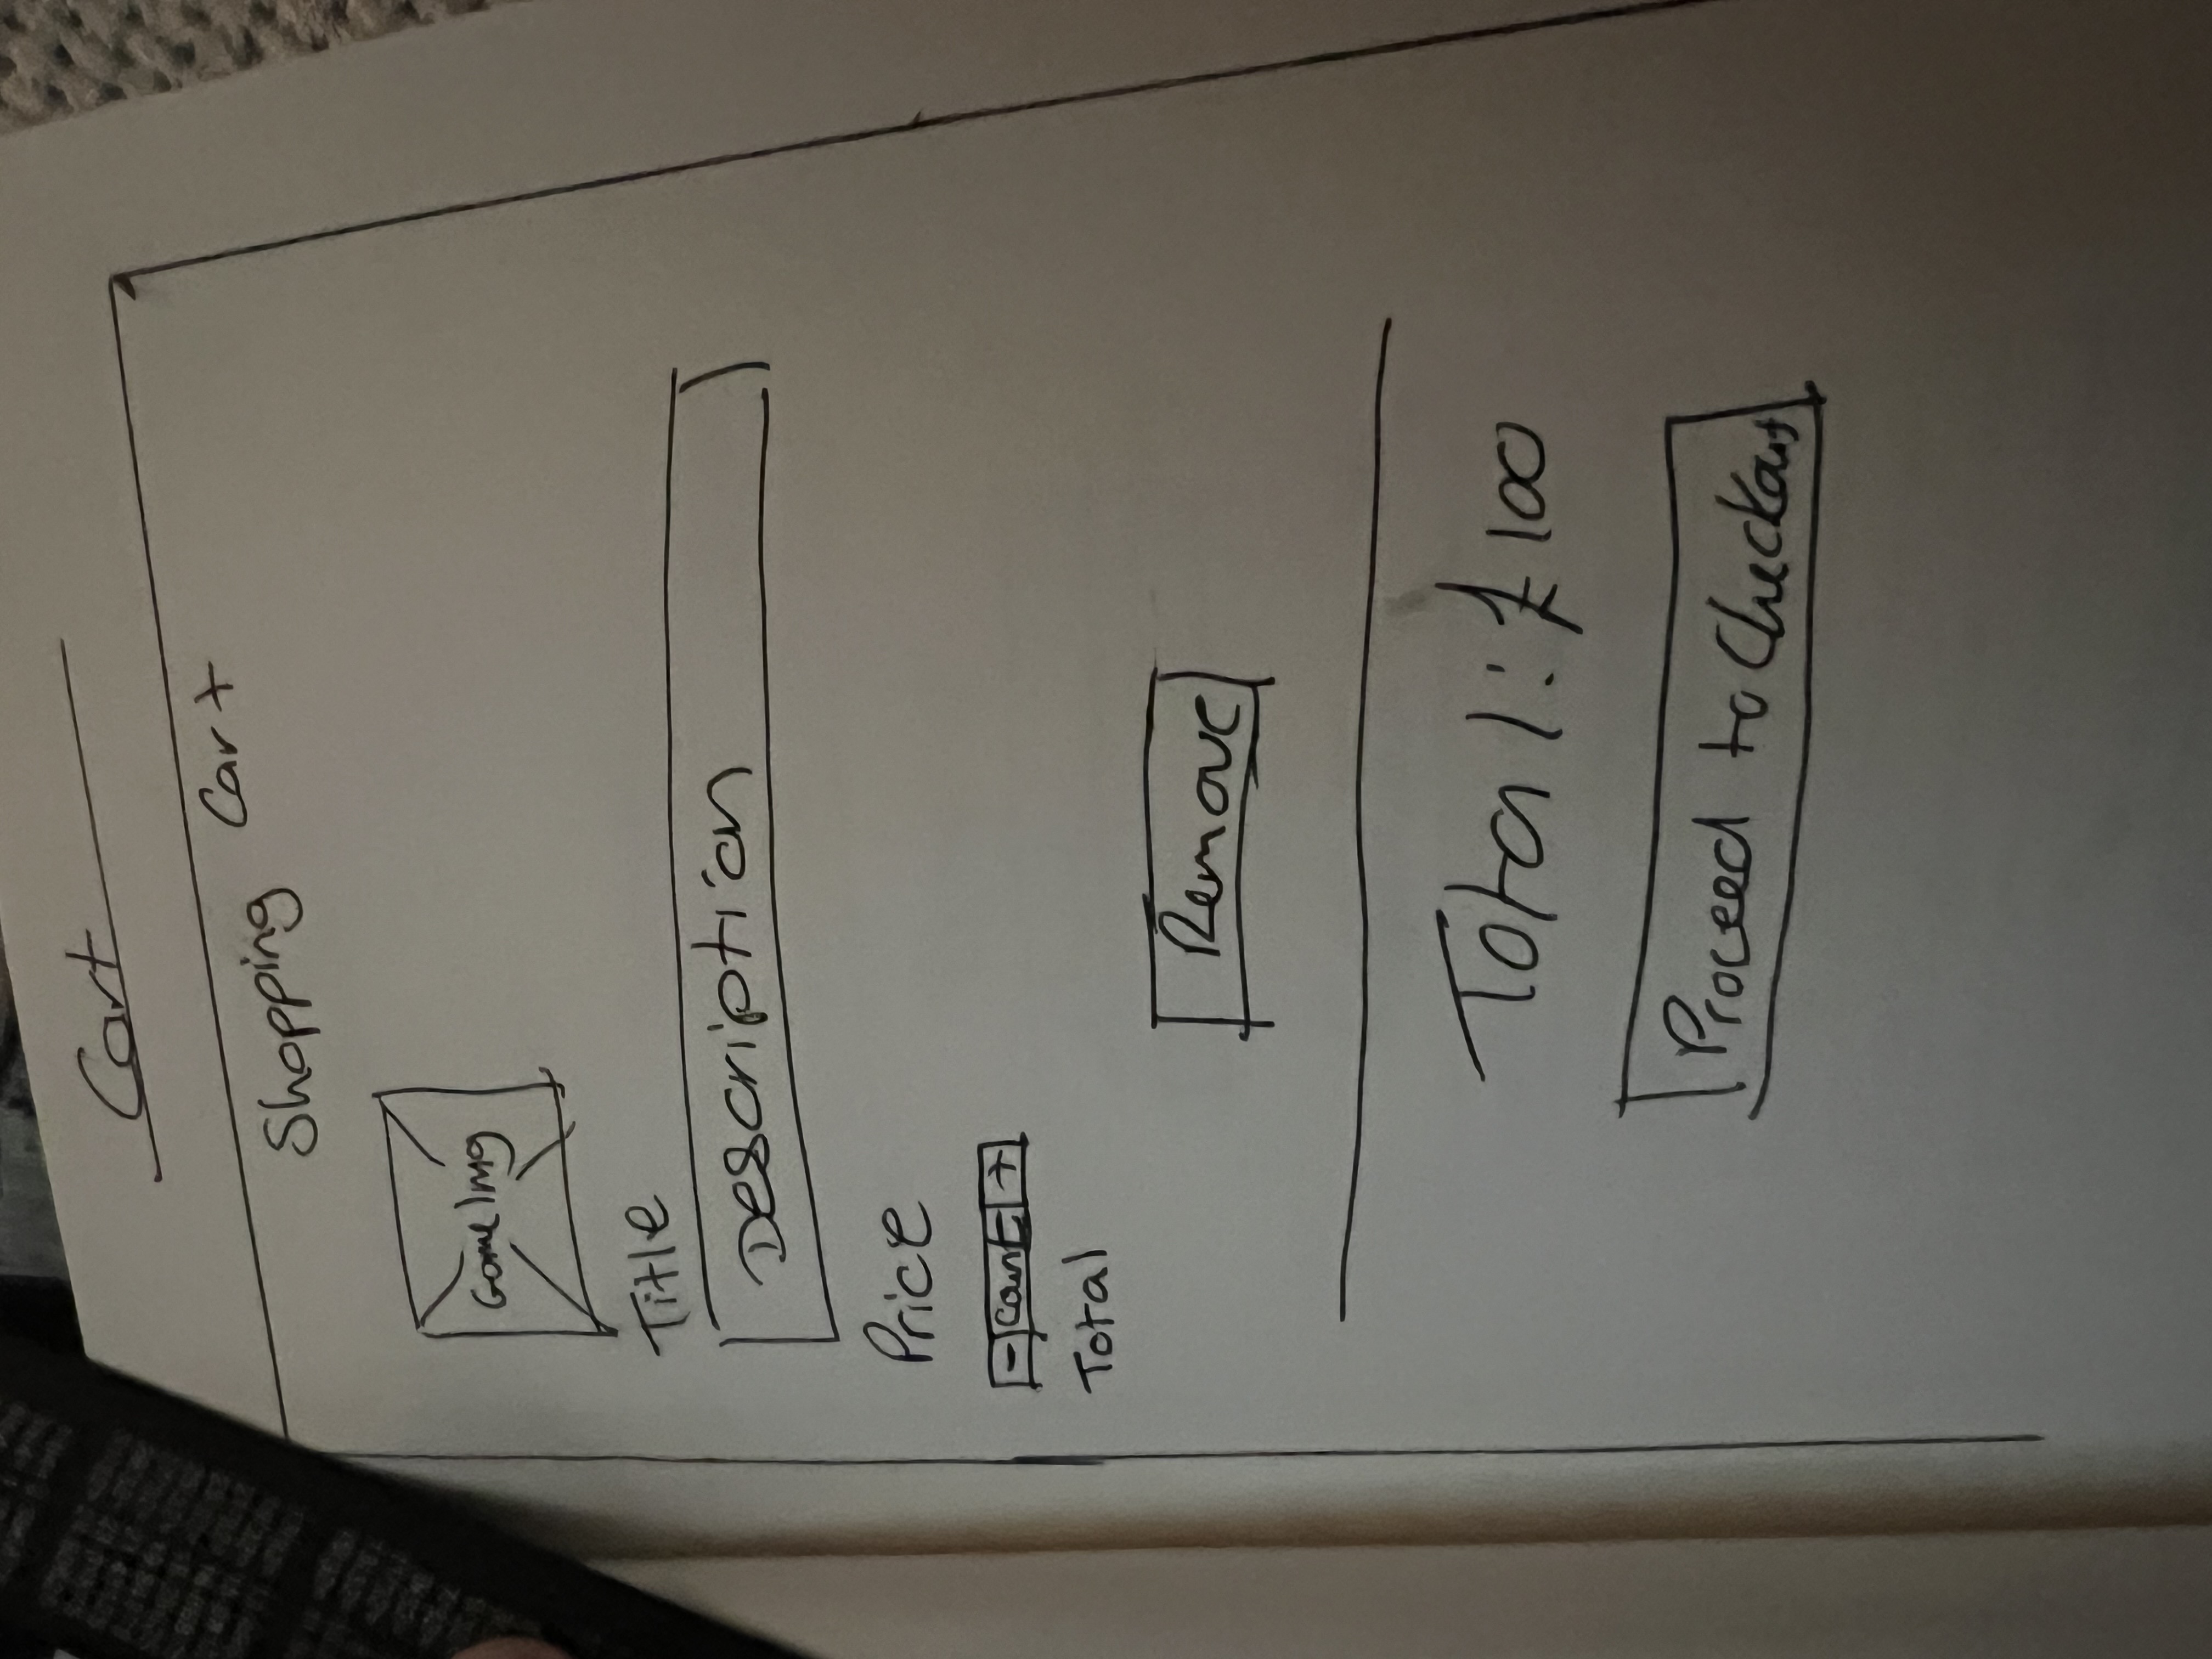 Cart
Shopping Cart
Game Img
Title
Description
Price
- Count +
Total
Remove
Total: £100
Proceed to Checkout